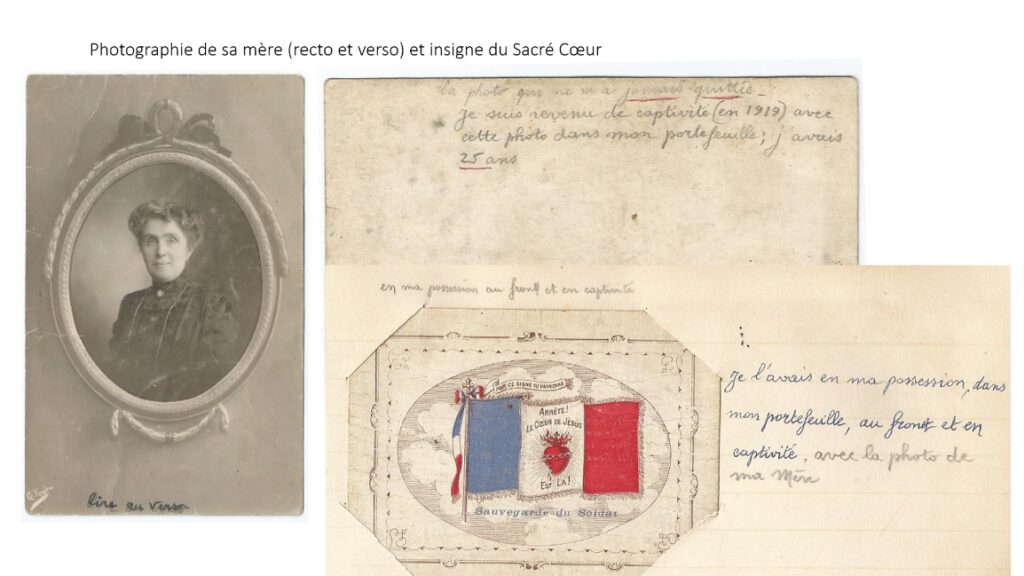 Photographie de sa mère (recto et verso) et insigne du Sacré Cœur
lire au verso
la photo qui ne m'a jamais quittée.
Je suis revenu de captivité (en 1919) avec
cette photo dans mon portefeuille ; j'avais
25 ans
en ma possession au front et en captivité
PAR CE SIGNE TU VAINCRAS
ARRÊTE!
LE CŒUR DE JÉSUS
EST LÀ!
Sauvegarde du Soldat
Je l'avais en ma possession, dans
mon portefeuille, au front et en
captivité, avec la photo de
ma Mère